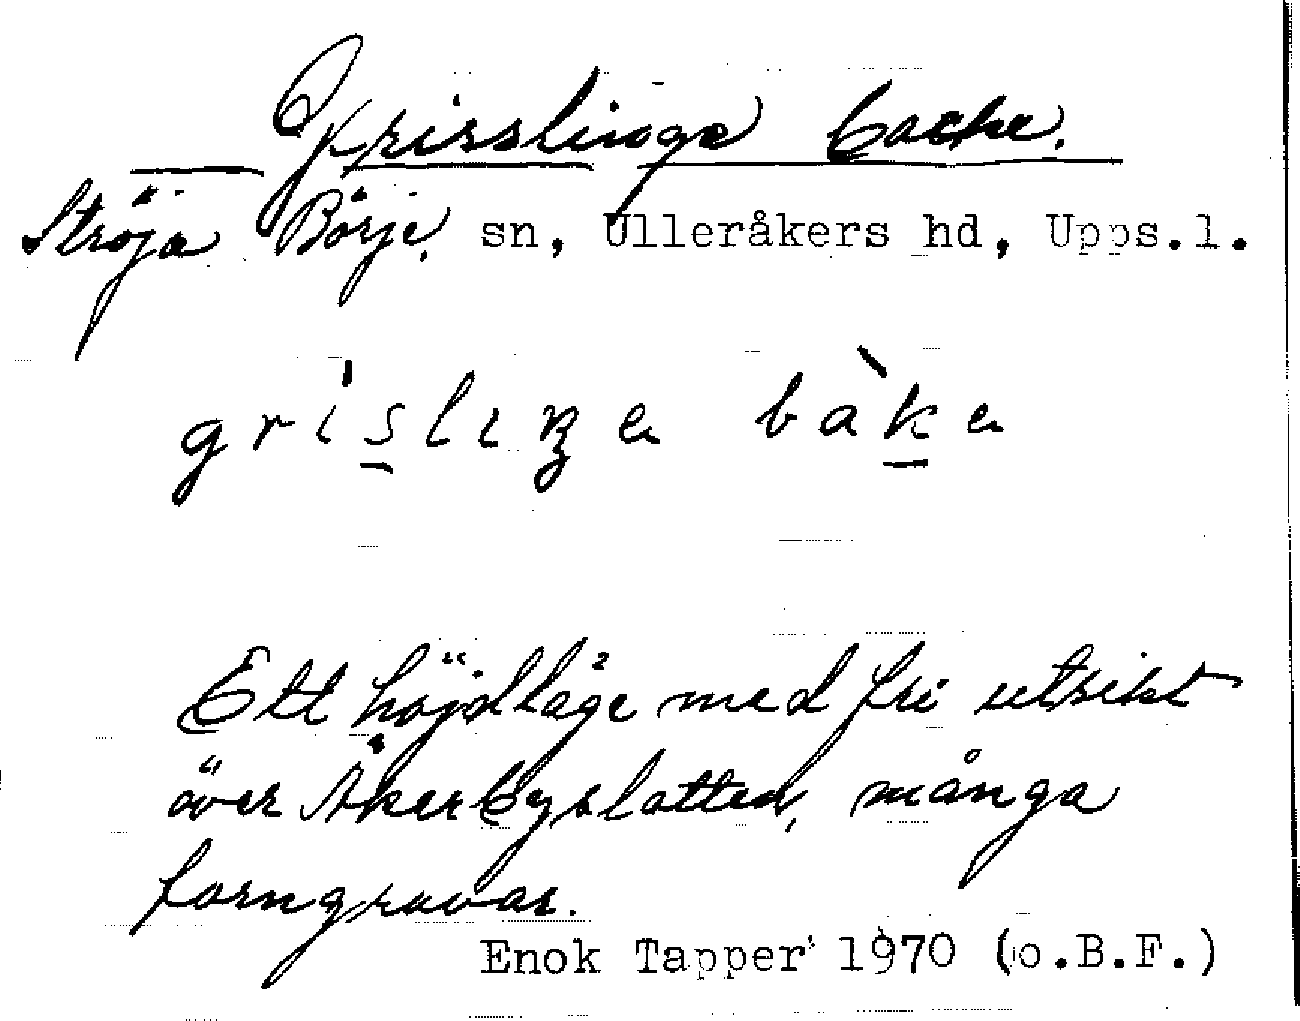 Grisslinge backe.
Ströja Börje, sn, Ulleråkers hd, Upps.l.
grislıŋɐ bàkɐ
Ett höjdläge med fri utsikt
över Åkerbyslätten, många
forngravar.
Enok Tapper 1970 (o.B.F.)